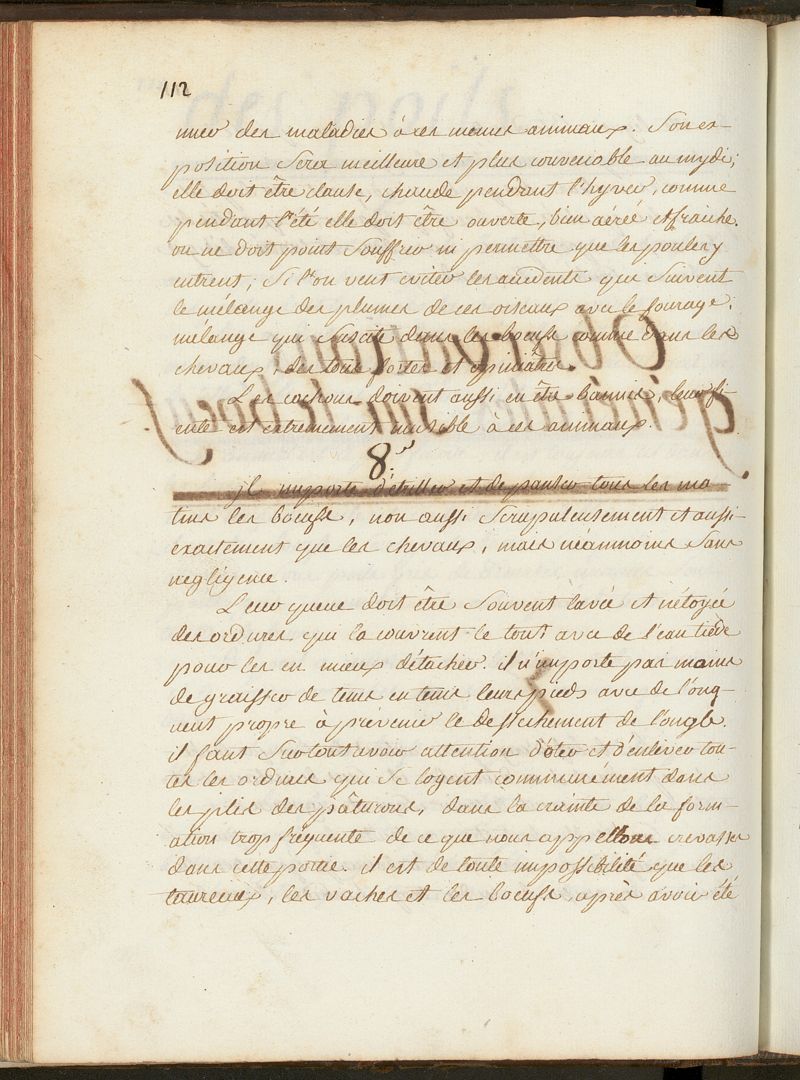 112
mer des maladies à ces memes animaux. Son ex-
position sera meilleure et plus convenable au mydi;
elle doit être clause, chaude pendant l'hyver, comme
pendant l'été elle doit être ouverte, bien aéréé et fraiche.
on ne doit point souffrir ni permettre que les poules y
entrent; Si l'on veut eviter les accidents qui suivent
le mélange des plumes de ces oiseaux avec le fourage.
mélange qui suscite dans les boeufs comme dans les
chevaux, des toux fortes et opiniatres.
Les cochons doivent aussi en être bannis, leur fi-
ente est extremement nuisible à ces animaux.
8.º
jl importe d'étriller et de panser tous les ma-
tins les boeufs, non aussi scrupuleusement et aussi
exactement que les chevaux; mais néanmoins sans
negligence.
Leur queue doit être souvent lavée et nétoyée
des ordures qui la couvrent le tout avec de l'eau tiède
pour les en mieux détacher. il n'importe pas moins
de graisser de tems en tems leurs pieds avec de l'ong-
uent propre à prévenir le desséchement de l'ongle.
il faut surtout avoir attention d'oter et d'enlever tou-
tes les ordures qui se logent communément dans
les plis des pâturons, dans la crainte de la form-
ation trop fréquente de ce que nous appellons crevasses
dans cette partie. il est de toute impossibilité que les
taureaux, les vaches et les boeufs, après avoir été
Observations
générales sur le boeuf.